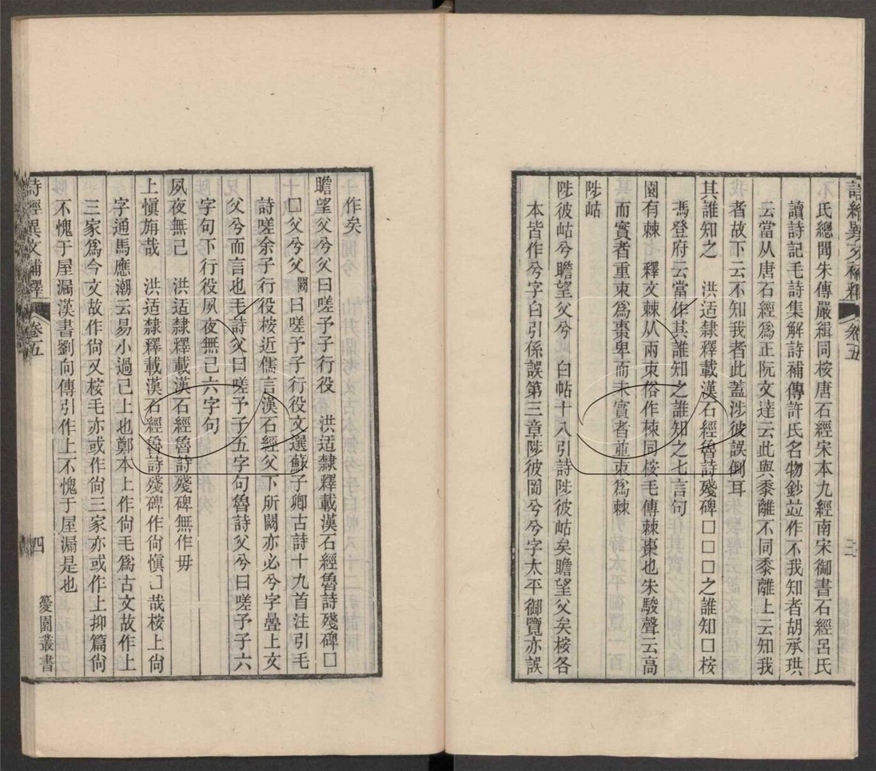 詩經異文補釋 卷五 三
氏總聞朱傳嚴緝同桉唐石經宋本九經南宋御書石經呂氏
讀詩記毛詩集解詩補傳許氏名物鈔竝作不我知者胡承珙
云當从唐石經爲正阮文達云此與黍離不同黍離上云知我
者故下云不知我者此蓋涉彼誤倒耳
其誰知之 洪适隸釋載漢石經魯詩殘碑□□□之誰知□桉
馮登府云當作其誰知之誰知之七言句
園有棘 釋文棘从兩朿俗作棶同桉毛傳棘棗也朱駿聲云高
而實者重朿爲棗卑而未實者重朿爲棘
陟岵
陟彼岵兮瞻望父兮 白帖十八引詩陟彼岵矣瞻望父矣桉各
本皆作兮字白引係誤第三章陟彼岡兮兮字太平御覽亦誤
作矣
瞻望父兮父曰嗟予子行役 洪适隸釋載漢石經魯詩殘碑□
□父兮父闕曰嗟予子行役文選蘇子卿古詩十九首注引毛
詩嗟余子行役桉近儒言漢石經父下所闕亦必兮字疊上文
父兮而言也毛詩父曰嗟予子五字句魯詩父兮曰嗟予子六
字句下行役夙夜無已六字句
夙夜無已 洪适隸釋載漢石經魯詩殘碑無作毋
上愼旃哉 洪适隸釋載漢石經魯詩殘碑作尙愼□哉桉上尙
字通馬應潮云易小過已上也鄭本上作尙毛爲古文故作上
三家爲今文故作尙又桉毛亦或作尙三家亦或作上抑篇尙
不愧于屋漏漢書劉向傳引作上不愧于屋漏是也
詩經異文補釋 卷五 四 㥯園叢書